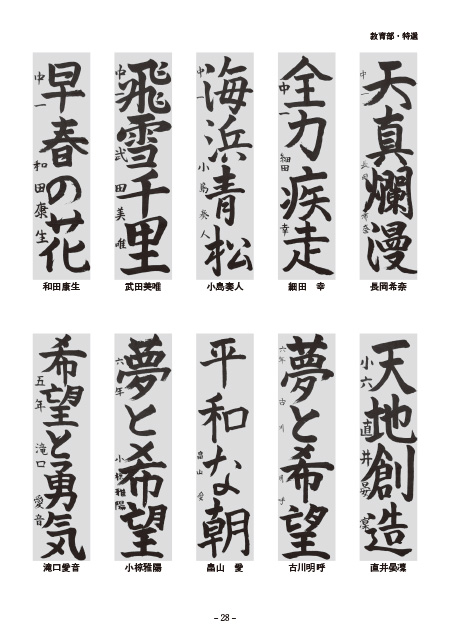 教育部・特選
天真爛漫
中一
長岡希奈
長岡希奈
全力疾走
中一
細田 幸
細田　幸
海浜青松
中一
小島奏人
小島奏人
飛雪千里
中二
武田美唯
武田美唯
早春の花
中一
和田康生
和田康生
天地創造
小六
直井晏凜
直井晏凜
夢と希望
六年
古川明呼
古川明呼
平和な朝
畠山 愛
畠山　愛
夢と希望
六年
小椋雅陽
小椋雅陽
希望と勇気
五年
滝口愛音
滝口愛音
– 28 –